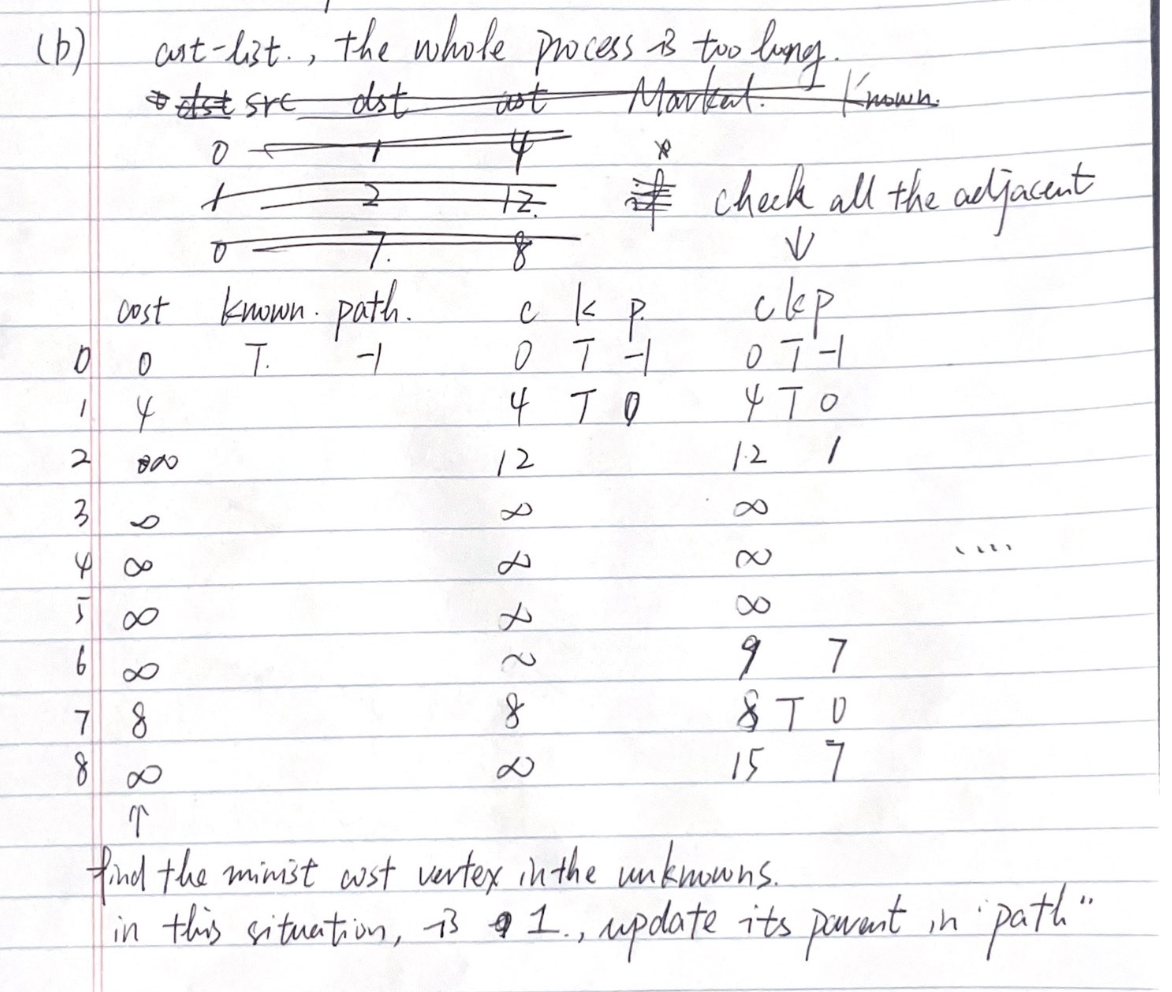 (b) cost-list., the whole process is too long.
dst src dst cost Marked. Known.
0 1 4 *
1 2 12. check all the adjacent
0 7. 8 ↓
cost known. path. c k p. c k p
0 0 T. -1 0 T -1 0 T -1
1 4 4 T 0 4 T 0
2 ∞ 12 12 1
3 ∞ ∞ ∞
4 ∞ ∞ ∞ ....
5 ∞ ∞ ∞
6 ∞ ∞ 9 7
7 8 8 8 T 0
8 ∞ ∞ 15 7
↑
find the minist cost vertex in the unknowns.
in this situation, is 1., update its parent in "path"